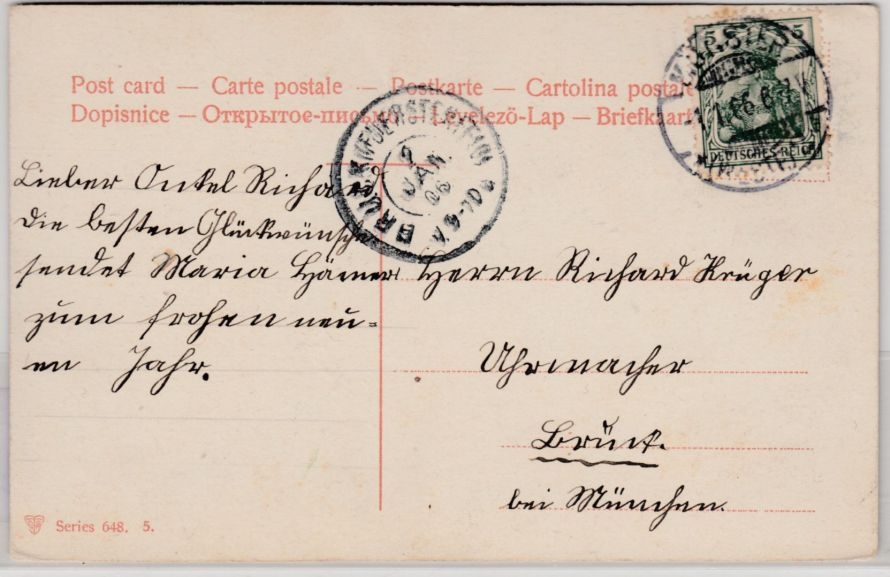 Post card — Carte postale — Postkarte — Cartolina postale
Dopisnice — Открытое-письмо — Levelezö-Lap — Briefkaart
5 5
DEUTSCHES REICH
BRUCK
2
JAN.
06
Lieber Onkel Richard
Die besten Glückwünsche
sendet Maria Hämer
zum frohen neu=
en Jahr.
Herrn Richard Krüger
Uhrmacher
Brück.
bei München.
Series 648. 5.